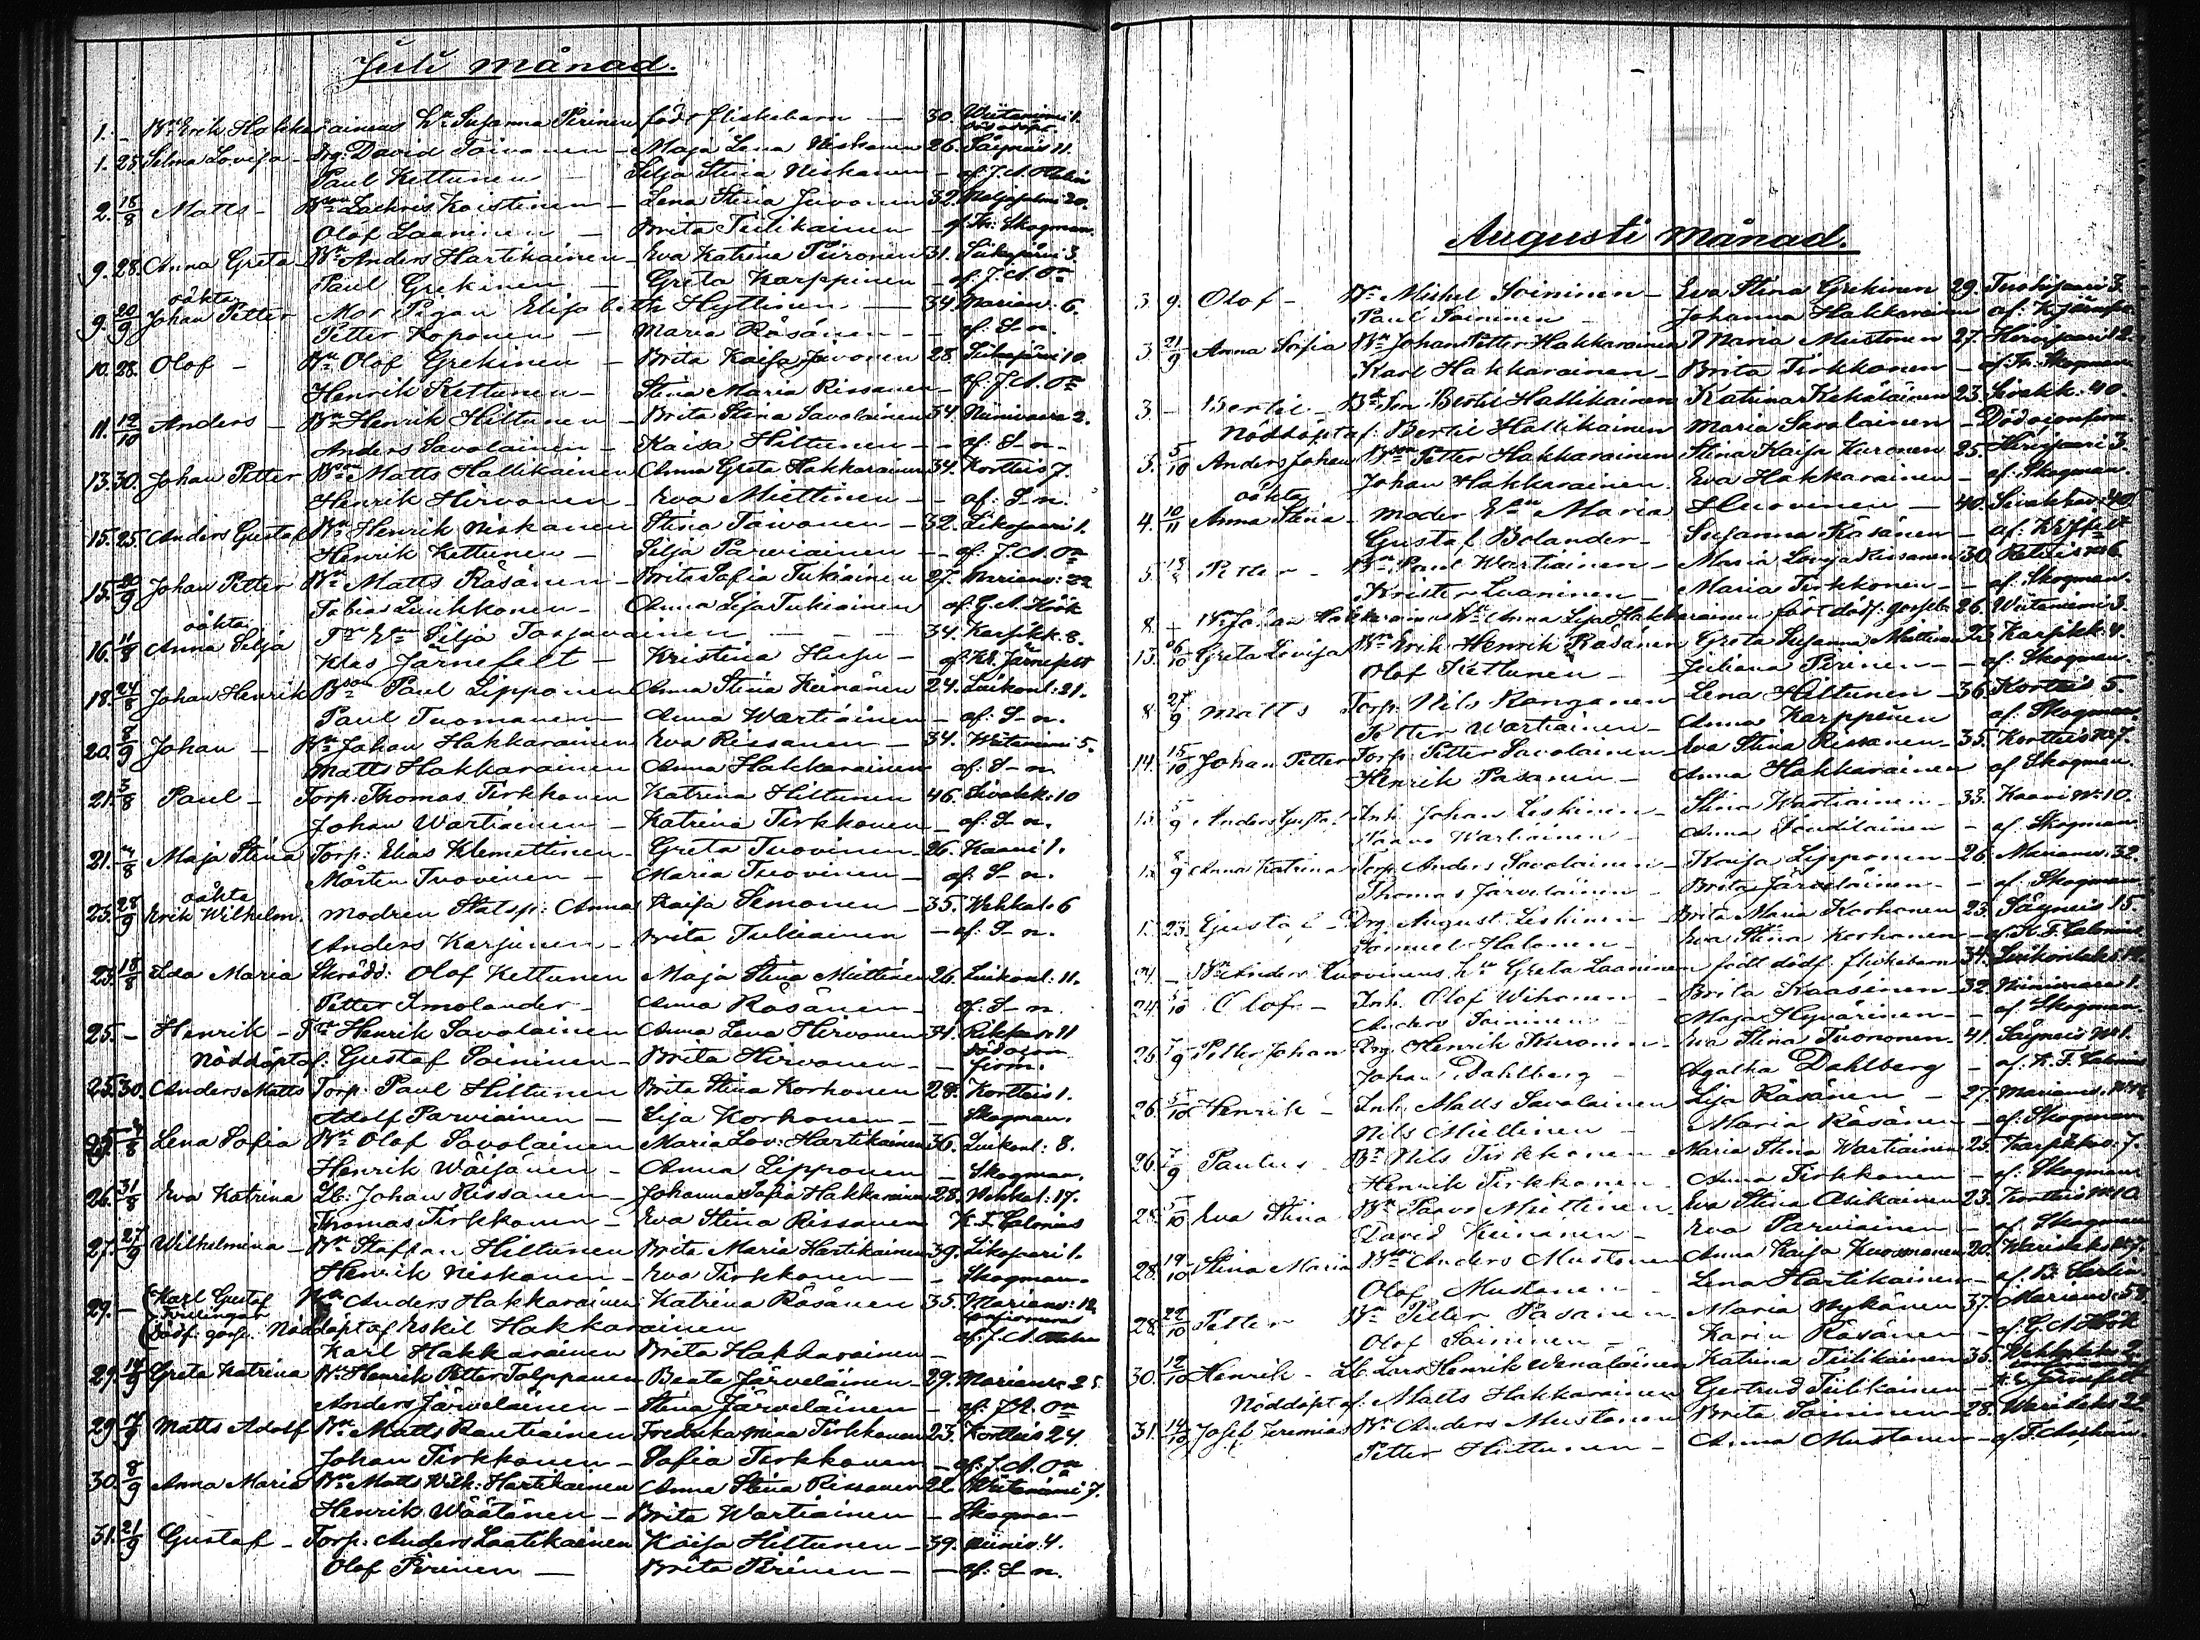 Juli månad.
1. - Bn Erik Hakkarainens h. Susanna Pirinen född flickebarn - 30. Wiitaniemi 1.
1. 25. Selma Lovisa - Drg: David Toivanen - Maja Lena Niskanen 26. Säyneis 11.
Paul Kettunen - Silja Stina Niskanen - af. J. A.
2. 18/8 Matts - Bson Zachris Koistinen - Lena Stina Juvonen 32.
Olof Laaninen - Brita Tiilikainen - af Kr: Skogman
9. 28. Anna Greta Bn Anders Hartikainen - Eva Katrina Piironen 31. Siikajärvi 3.
Paul Grekinen - Greta Karppinen - af. J. A. On
oäkta
9. 20/9 Johan Petter Mor Pigan Elisabeth Hyttinen - 34. Marianv. 6.
Petter Koponen - Maria Räsänen - af. S-n.
10. 28. Olof - Bn Olof Grekinen - Brita Kaisa Juvonen 28. Siikajärvi 10.
Henrik Kettunen - Stina Maria Rissanen - af. J. A. On
11. 12/10 Anders - Bn Henrik Hiltunen - Brita Stina Savolainen 34. Niinivaara 2.
Anders Savolainen - Kaisa Hiltunen - - af. S-n.
13. 30. Johan Petter Bn Matts Hallikainen Anna Greta Hakkarainen 34. Kortteis 7.
Henrik Hirvonen - Eva Miettinen - - af. S-n.
15. 25. Anders Gustaf Bn Henrik Niskanen Stina Toivanen - 32. Likopuri 1.
Henrik Kettunen - Silja Parviainen - - af. J. A. On
15. 20/9 Johan Petter Bn Matts Räsänen - Brita Sofia Tukiainen 27. Marianv: 22
Tobias Luukkonen - Anna Lisa Tukiainen af. G. A. Höök
oäkta
16. 11/8 Anna Silja Silja Tarjavainen - 34. Karsikk. 8.
Klas Järnefelt - Kristina - af Kl. Järnefelt
18. 24/8 Johan Henrik Bson Paul Lipponen Anna Stina Keinänen 24. Luikonl: 21.
Paul Tuomanen - Anna Wartiainen - af: S-n.
20. 8/9 Johan - Bn Johan Hakkarainen Eva Rissanen - 34. Wiitaniemi 5.
Matts Hakkarainen Anna Hakkarainen af. S-n
21. 3/8 Paul - Torp: Thomas Tirkkonen Katrina Hiltunen 46. Sivakk: 10
Johan Wartiainen - Katrina Tirkkonen - af. S-n.
21. 7/8 Maja Stina Torp: Elias Klemettinen - Greta Tuovinen - 26. Kaavi 1.
Mårten Tuovinen - Maria Tuovinen - af: S-n.
oäkta
23. 28/9 Erik Wilhelm. modren Statsp: Anna Kaisa Simonen - 35. Wehkal. 6
Anders Karjunen - Brita Tukiainen - af. S-n.
23. 18/8 Ida Maria Skrädd: Olof Kettunen Maja Stina Miettinen 26. Luikonl: 11.
Petter Smolander - Anna Räsänen - af. S-n.
25. - Henrik - Henrik Savolainen Anna Lena Hirvonen 34. 11
Nöddöpt af: Gustaf Soininen - Brita Hirvonen -
25. 30. Anders Matts Torp. Paul Hiltunen Brita Stina Korhonen 28. Kortteis 1.
Adolf Parviainen - Lisa Korhonen - Skogman.
25. 7/8 Lena Sofia Bn Olof Savolainen Maria Lov: Hartikainen 36. Luikonl: 8.
Henrik Wäisänen - Anna Lipponen - Skogman.
26. 31/8 Eva Katrina Lb: Johan Rissanen - Johanna Sofia Hakkarainen 28. Wehkal: 17.
Thomas Tirkkonen - Eva Stina Rissanen K. F. Calonius
27. 27/9 Wilhelmina - Bn Staffan Hiltunen Brita Maria Hartikainen 39. Likopuri 1.
Henrik Niskanen - Eva Tirkkonen - - Skogman.
29. - Karl Gustaf Anders Hakkarainen Katrina Räsänen 35. Marianv: 12
Tvillingar
Dödf. goss. Nöddöpt af Eskil Hakkarainen
Karl Hakkarainen Brita Hakkarainen - af. J. A.
29. 14/9 Greta Katrina Bn Henrik Petter Tolppanen Beata Järveläinen - 29. Marianv. 25.
Anders Järveläinen - Stina Järveläinen - af. J. A. On
29. Matts Adolf Bn Matts Rautiainen Fredrika Mina Tirkkonen 23. Kortteis 24.
Johan Tirkkonen - Sofia Tirkkonen - af. J. A. On
30. 8/9 Anna Maria Bn Matts Wilh: Hartikainen Anna Stina Rissanen 22. Wiitaniemi 7.
Henrik Wäätänen - Brita Wartiainen - Skogman
31. 21/9 Gustaf - Torp: Anders Laatikainen Kaisa Hiltunen - 39. Niiniv. 4.
Olof Pirinen - Brita Pirinen - - af: S-n.
Augusti månad.
3 9. Olof - Bn Mickel Soininen - Eva Stina Grekinen 29. Tuosijaari 3.
Paul Soininen - Johanna Hakkarainen af: K. Järnf.
3 21/9 Anna Sofia Bn Johan Petter Hakkarainen Maria Mustonen 27. Hirvijaari 12.
Karl Hakkarainen - Brita Tirkkonen - af. Kr. Skogman
3 - Bertil - Bn Son Bertil Hallikainen Katrina Kekäläinen 23. Sivakk: 40.
Nöddöpt af: Bertil Hallikainen Maria Savolainen - Död
3. 5/10 Anders Johan Bson Petter Hakkarainen Stina Kaisa Kuronen 25. Hirvijaari 3.
Johan Hakkarainen. Eva Hakkarainen - af. Skogman.
oäkta
4. 10/11 Anna Stina - moder Maria Huovinen - 40. Sivakkav: 40
Gustaf Bolander - Susanna Räsänen - af:
5. Petter - Bn Paul Wartiainen - Maria Lovisa Rissanen 30. 6.
Krister Luaninen - Maria Tirkkonen - - af. Skogman.
8. - Bn Johan Hakkarainens h. Anna Lisa Hakkarainen född dödf. gossb. 26. Wiitaniemi 3.
13. 6/10 Greta Lovisa Bn Erik Henrik Räsänen Greta Susanna Miettinen 23. Karsikk: 4.
Olof Kettunen - Juliana Pirinen - - af: Skogman.
8 27/9 Matts Torp: Nils Ronganen Lena Hiltunen - 36. Kortteis 5.
Petter Wartiainen - Anna Karppinen af Skogman.
14. 15/10 Johan Petter Torp. Petter Savolainen Eva Stina Rissanen - 35. Kortteis No 7.
Henrik Pasanen - Anna Hakkarainen af Skogman.
5/9 Anders Gustaf Inh. Johan Leskinen - Stina Wartiainen - 33. Kaavi No 10.
Paavo Wartiainen - Anna - af. Skogman
8/9 Anna Katrina Torp. Anders Savolainen - Kaisa Lipponen - 26. Marianv. 32.
Thomas Järveläinen - Brita Järveläinen - - af. Skogman
23. Gustaf - Drg. August Leskinen - Brita Maria Korhonen 23. Säyneis 15.
Samuel Halonen - Eva Stina Korhonen - af. K. F. Calonius
21. - Bn Anders Tuovinens h. Greta Laaninen född dödf. flickebarn 34. Luikonlaks. 12.
24. 5/10 Olof - Inh. Olof Wihonen - Brita Kaasinen - 32. Niinivaara 1.
Anders Soininen - Maja Hyvärinen - - af. Skogman
26 7/9 Petter Johan Drg. Henrik - Eva Stina Tuononen - 41. Säyneis No 1.
Johan Dahlberg - Agatha Dahlberg - af. K. F. Calonius
26. 5/10 Henrik - Inh. Matts Savolainen Lisa Räsänen - 27. Marianv.
Nils Miettinen - Maria Räsänen - af. Skogman
26 7/9 Paulus - Bn Nils Tirkkonen Maria Stina Wartiainen 25. Karsikkov. 7.
Henrik Tirkkonen - Anna Tirkkonen - af: Skogman
28. 5/10 Eva Stina Bn Paavo Miettinen - Eva Stina Asikainen 23. Kortteis No 10
David Keinänen - Eva Parviainen - af Skogman
28. 19/10 Stina Maria Bson Anders Mustonen Anna Kaisa Kuosmanen 20. Warislaks No 7.
Olof Mustonen - Lena Hartikainen - af. B.
28. 22/10 Petter Bn Petter Pasanen - Maria Nykänen 37. Marianv. 58
Olof Soininen - Karin Räsänen - af. G. A. Höök
30. 12/10 Henrik - Lb. Lars Henrik Wenäläinen Katrina Tiilikainen 35.
Nöddöpt af. Matts Hakkarainen Gertrud Tiilikainen - K. E. Järnefelt
31. 14/10 Josef Jeremias Bn Anders Mustonen Brita Soininen - 28. Warislaks 22
Petter Hiltunen - Anna Mustonen - af. F.